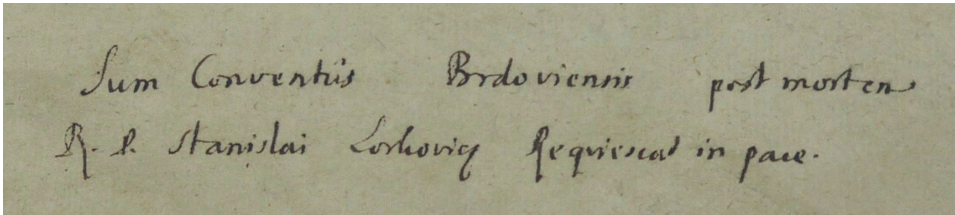 Sum Conventûs Brdoviensis post mortem
R. P. Stanislai Requiescat in pace.